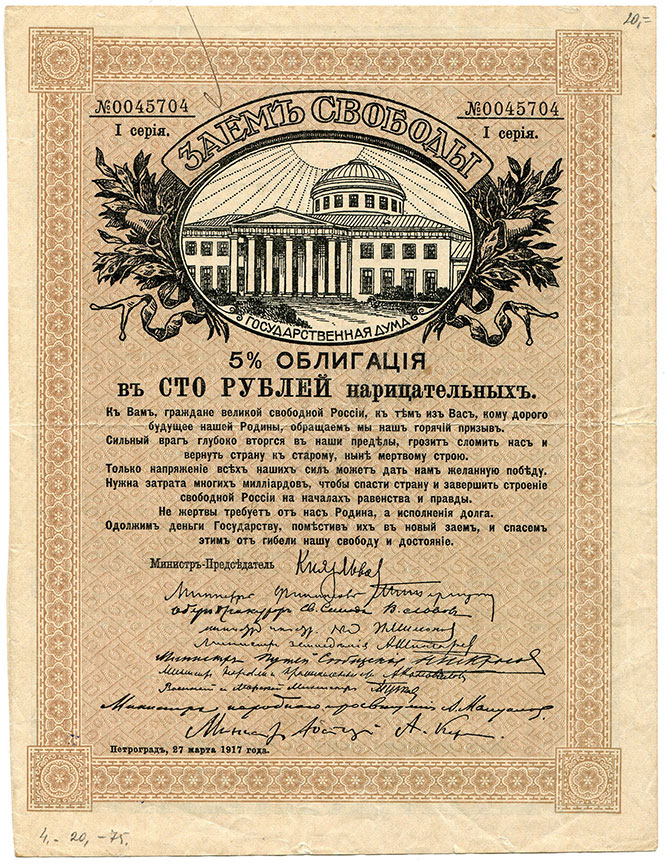 20,=
№0045704
№0045704
I серія.
I серія.
ЗАЕМЪ СВОБОДЫ
ГОСУДАРСТВЕННАЯ ДУМА
5% ОБЛИГАЦІЯ
въ СТО РУБЛЕЙ нарицательныхъ.
Къ Вамъ, граждане великой свободной Россіи, къ тѣмъ изъ Васъ, кому дорого
будущее нашей Родины, обращаемъ мы нашъ горячій призывъ.
Сильный врагъ глубоко вторгся въ наши предѣлы, грозитъ сломить насъ и
вернуть страну къ старому, нынѣ мертвому строю.
Только напряженіе всѣхъ нашихъ силъ можетъ дать намъ желанную побѣду.
Нужна затрата многихъ милліардовъ, чтобы спасти страну и завершить строеніе
свободной Россіи на началахъ равенства и правды.
Не жертвы требуетъ отъ насъ Родина, а исполненія долга.
Одолжимъ деньги Государству, помѣстивъ ихъ въ новый заемъ, и спасемъ
этимъ отъ гибели нашу свободу и достояніе.
Министръ-Предсѣдатель Князь Львов
Министръ Финансовъ
Оберъ Прокуроръ Св. Синода В. Львов
Министръ земледѣлія А. Шингарев
Министръ Путей Сообщенія Н. Некрасов
Министръ торговли и промышленности А. Коновалов
Военный и Морской Министръ Гучков
Министръ народного просвѣщенія А. Мануйлов
Министр Юстиціи А. Кер
Петроградъ, 27 марта 1917 года.
4,- 20,-75.